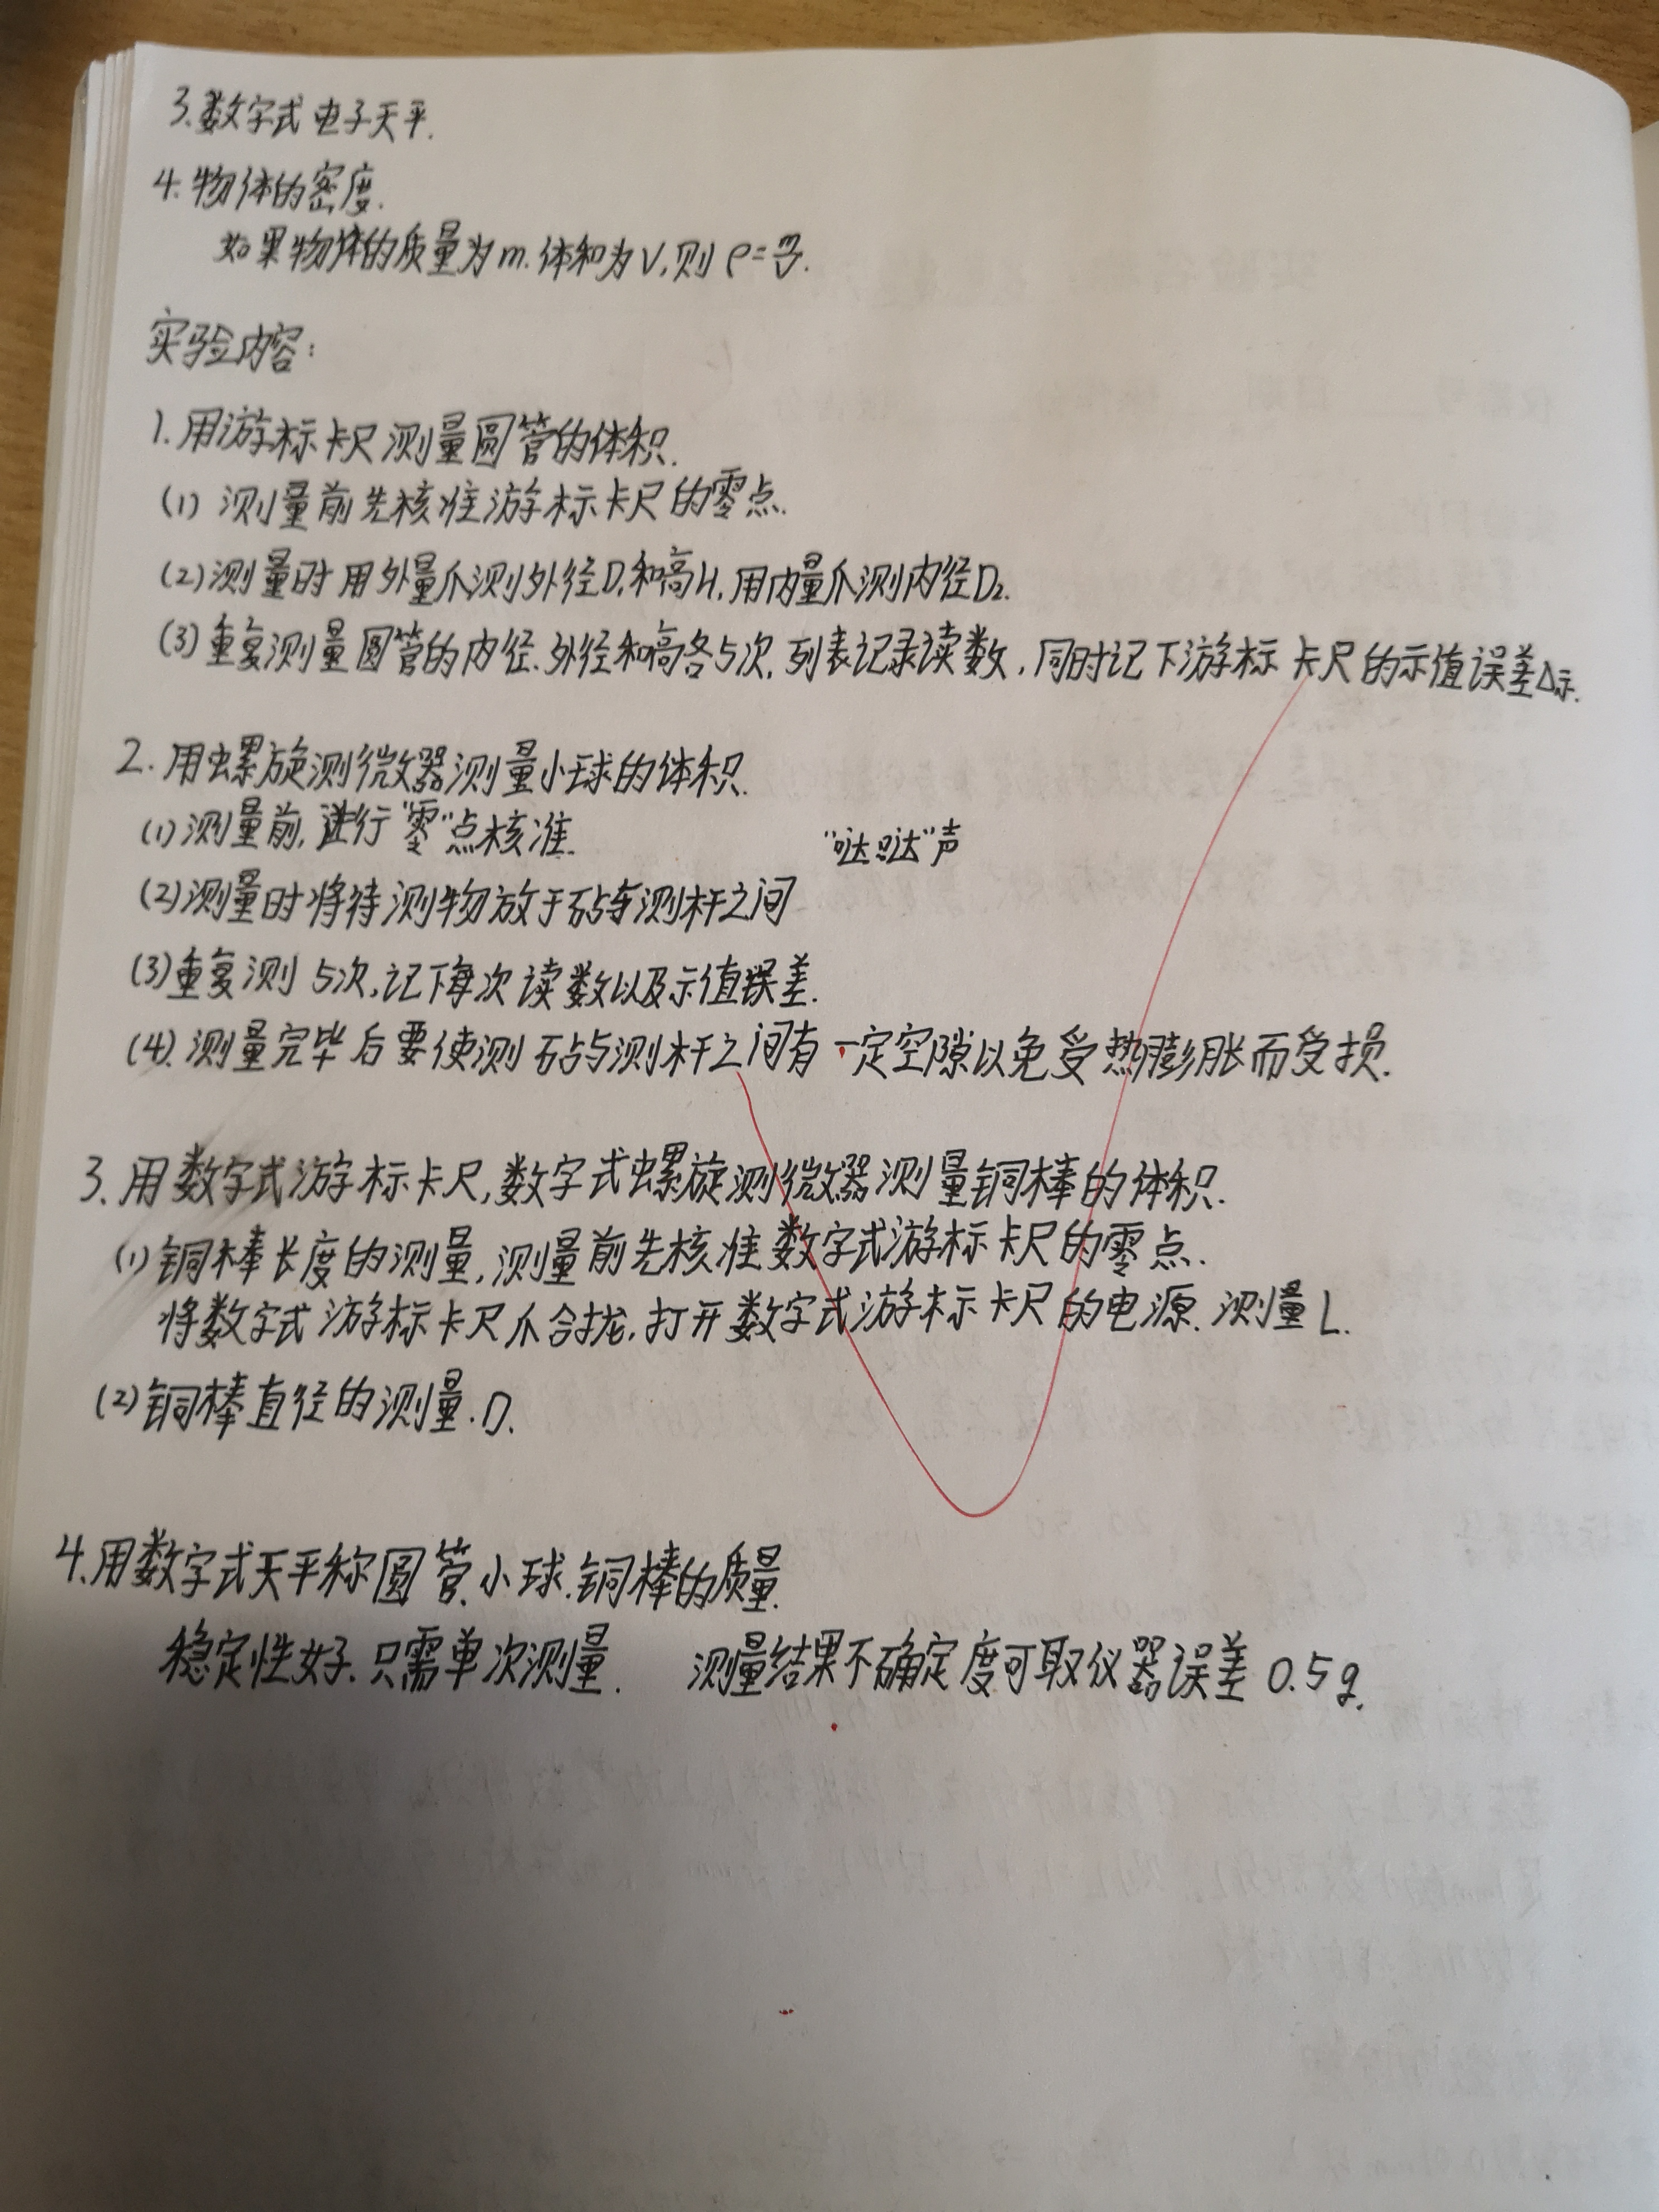 3.数字式电子天平.
4.物体的密度.
如果物体的质量为m.体积为V,则ρ=m/V.
实验内容:
1.用游标卡尺测量圆管的体积.
(1) 测量前先核准游标卡尺的零点.
(2)测量时用外量爪测外径D₁和高H,用内量爪测内径D₂.
(3)重复测量圆管的内径.外径和高各5次,列表记录读数,同时记下游标卡尺的示值误差Δ示.
2.用螺旋测微器测量小球的体积.
(1)测量前,进行"零"点核准.
"哒哒"声
(2)测量时将待测物放于砧与测杆之间
(3)重复测5次,记下每次读数以及示值误差.
(4).测量完毕后要使测砧与测杆之间有一定空隙以免受热膨胀而受损.
3.用数字式游标卡尺,数字式螺旋测微器测量铜棒的体积.
(1)铜棒长度的测量,测量前先核准数字式游标卡尺的零点.
将数字式游标卡尺爪合拢,打开数字式游标卡尺的电源.测量L.
(2)铜棒直径的测量.D.
4.用数字式天平称圆管.小球.铜棒的质量.
稳定性好.只需单次测量. 测量结果不确定度可取仪器误差0.5g.